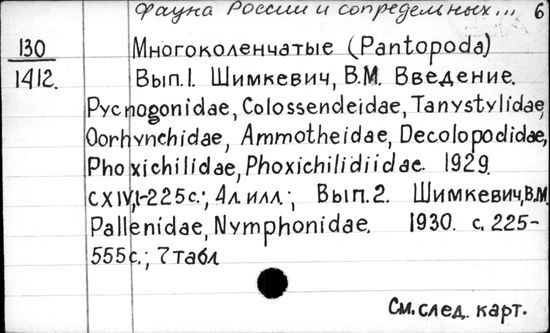 Фауна России и сопредельных... 6
130 Многоколенчатые (Pantopoda)
1412. Вып.1. Шимкевич, В.М. Введение.
Pycnogonidae, Colossendeidae, Tanystylidae,
Oorhynchidae, Ammotheidae, Decolopodidae,
Phoxichilidae, Phoxichilidiidae. 1929.
CXIV, 1-225 с.; 4 л илл.; Вып.2. Шимкевич, В.М.
Pallenidae, Nymphonidae. 1930. с. 225-
555 с.; 7 табл
См. след. карт.